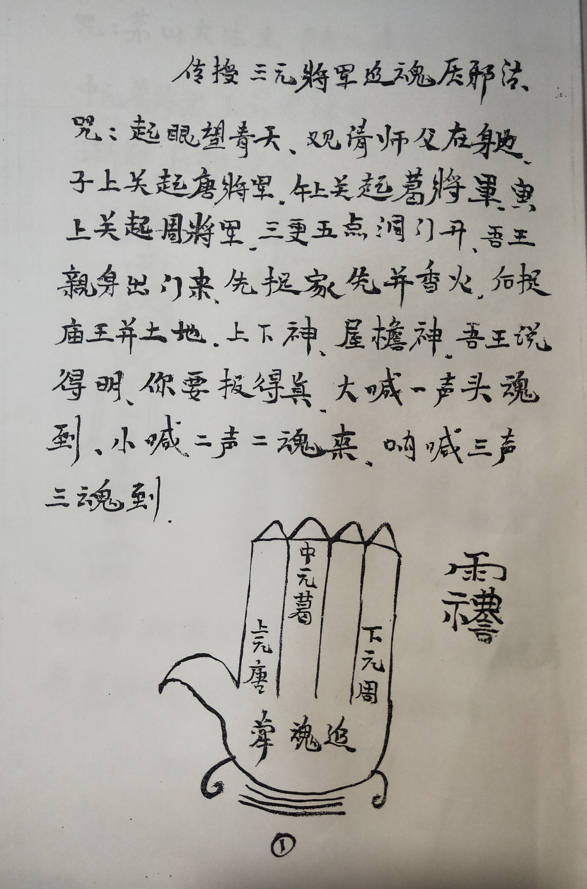 传授三元將軍追魂压邪法、
咒：起眼望青天、观请师父在身边、
子上关起唐將軍、午上关起葛將軍、寅
上关起周將軍、三更五点洞门开、吾王
親身出门来、先捉家先并香火、后捉
庙王并土地、上下神、屋檐神、吾王说
得明、你要报得真、大喊一声头魂
到、小喊二声二魂来、呐喊三声
三魂到.
中元葛
上元唐
下元周
追魂掌
①